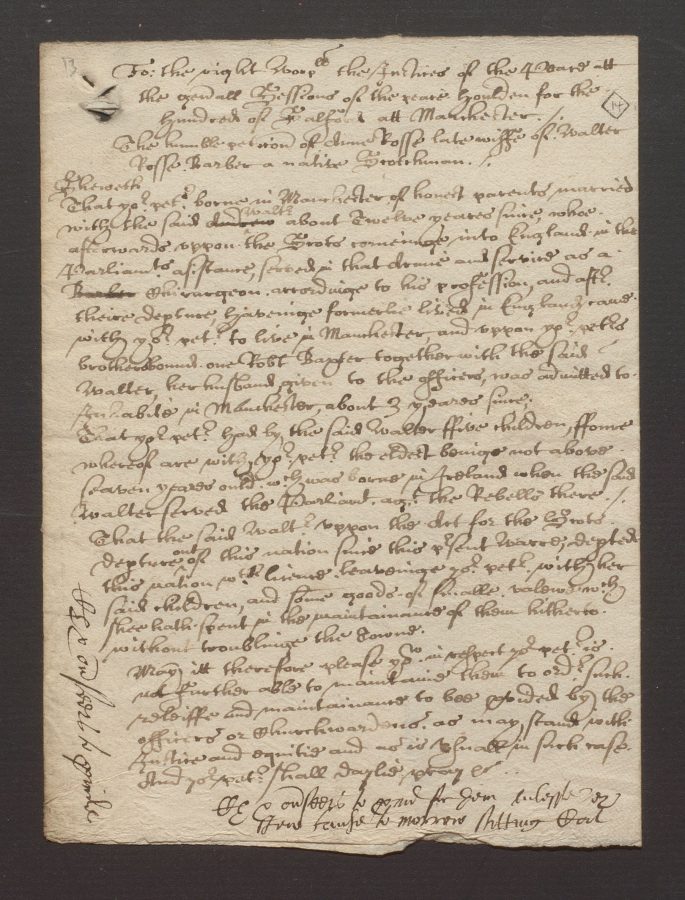 13
To: the right Worpll the Justices of the Peace att
the gen'all Sessions of the peace houlden for the
hundred of Salford att Manchester./
14
The humble petic͠on of Anne Rosse late wiffe of Walter
Rosse Barber a native Scotchman./
Sheweth
That yor petr borne in Manchester of honest parents, married
with the said Andrew Waltr about Twelve yeares since, whoe
afterwards uppon the Scots cominge into England in the
Parliamts assistance, served in that Armie and service as a
Barber Chirurgeon, accordinge to his profession, and aftr
theire depture haveinge formerlie lived in England, came
with yor petr to live in Manchester, and uppon yor petrs
brothers bound one Robt together with the said
Walter, her husband, given to the officers, was admitted to
Inhabite in Manchester, about 3 yeares since;
That yor petr had by the said Walter ffive children, ffoure
whereof are with yor petr the eldest beinge not above
seaven yeares ould, wch was borne in Ireland when the said
Walter served the Parliamt agt the Rebells there./
That the said Waltr uppon the Act for the Scots
depture out of this nation since this pr'sent warre, depted
this nation with licence, leaveinge yor petr with her
said children, and some goods of smalle valewe, wch
shee hath spent in the maintainance of them hitherto
without troublinge the Towne.
May itt therefore please yow in respect yor petr is
not further able to maintaine them to ordr such
releiffe and maintainance to bee p'vided by the
officers or Churchwardens, as may stand with
Justice and equitie and as is usuall in such case
And yor petr shall daylie pray &c
overseers to p'vide for them unlesse they
shew cause to morrow sitting Court
overseers to p'vide